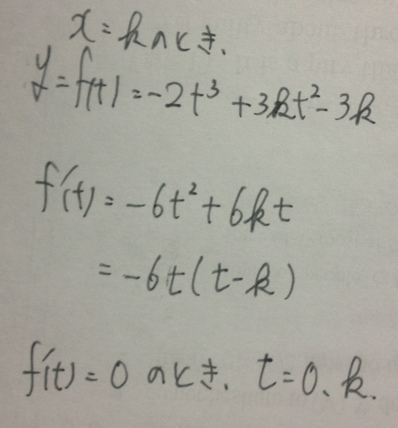 x=kのとき、
y=f(t)=-2t³+3kt²-3k
f'(t)=-6t²+6kt
=-6t(t-k)
f'(t)=0のとき、t=0、k.